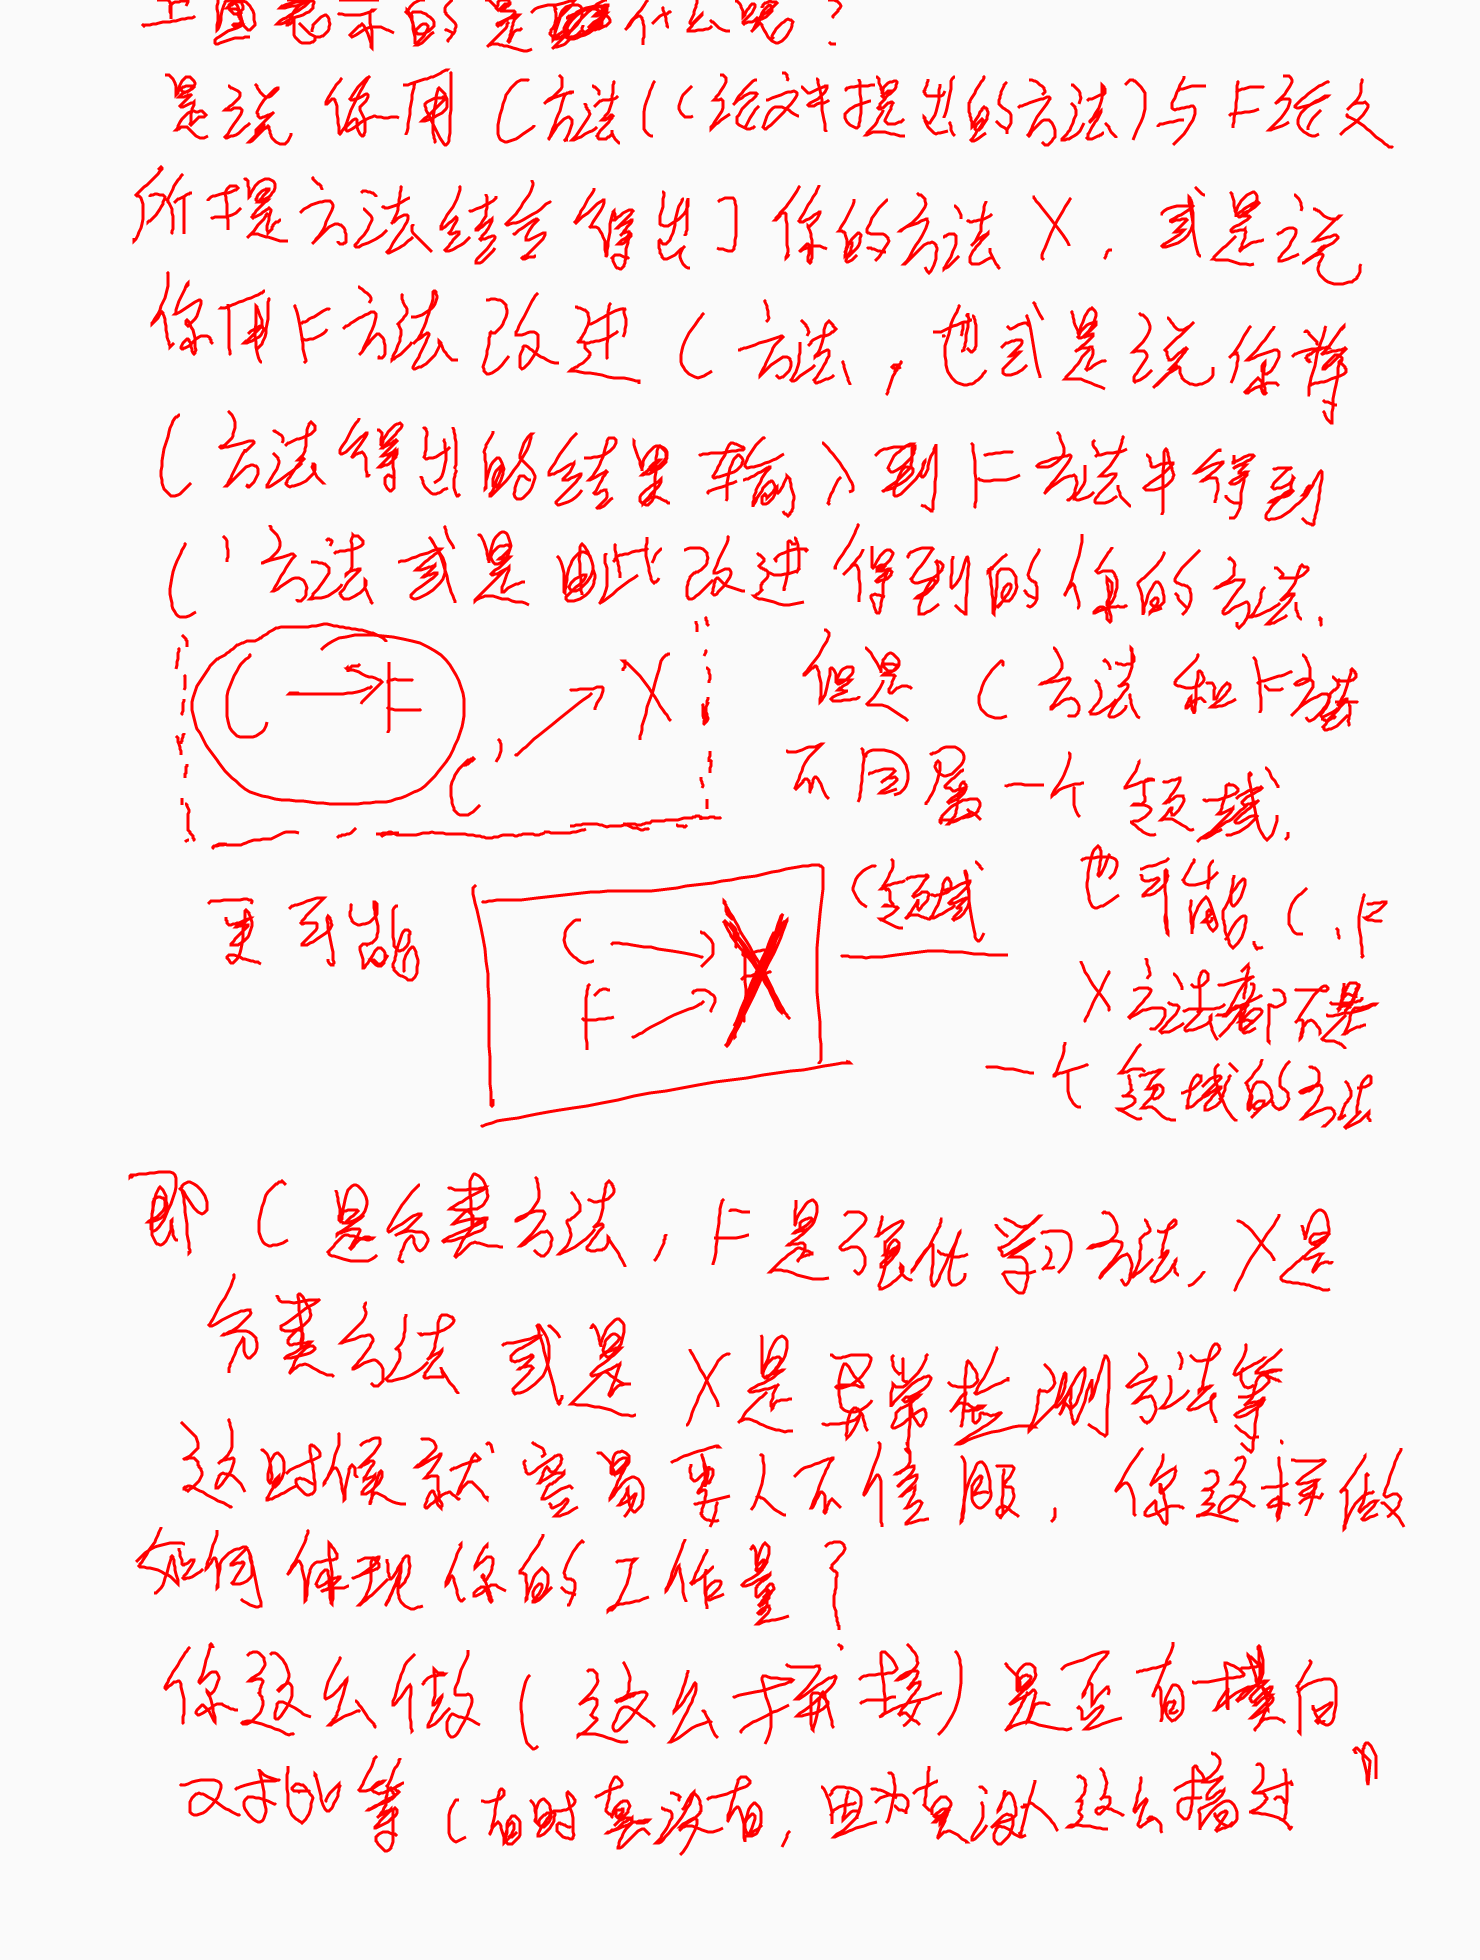 上图表示的是什么呢？
是说你用C方法（C论文中提出的方法）与F论文
所提方法结合得出了你的方法X，或是说
你用F方法改进C方法，也或是说你将
C方法得出的结果输入到F方法中得到
C'方法或是由此改进得到的你的方法.
C → F C' → X
但是C方法和F方法
不同属一个领域.
更可能
C
F
X
C领域
也可能C,F
X方法都不是
一个领域的方法
即C是分类方法，F是强化学习方法，X是
分类方法或是X是异常检测方法等
这时候就容易要人不信服，你这样做
如何体现你的工作量？
你这么做（这么拼接）是否有横向
对比等（有时真没有，因为真没人这么搞过